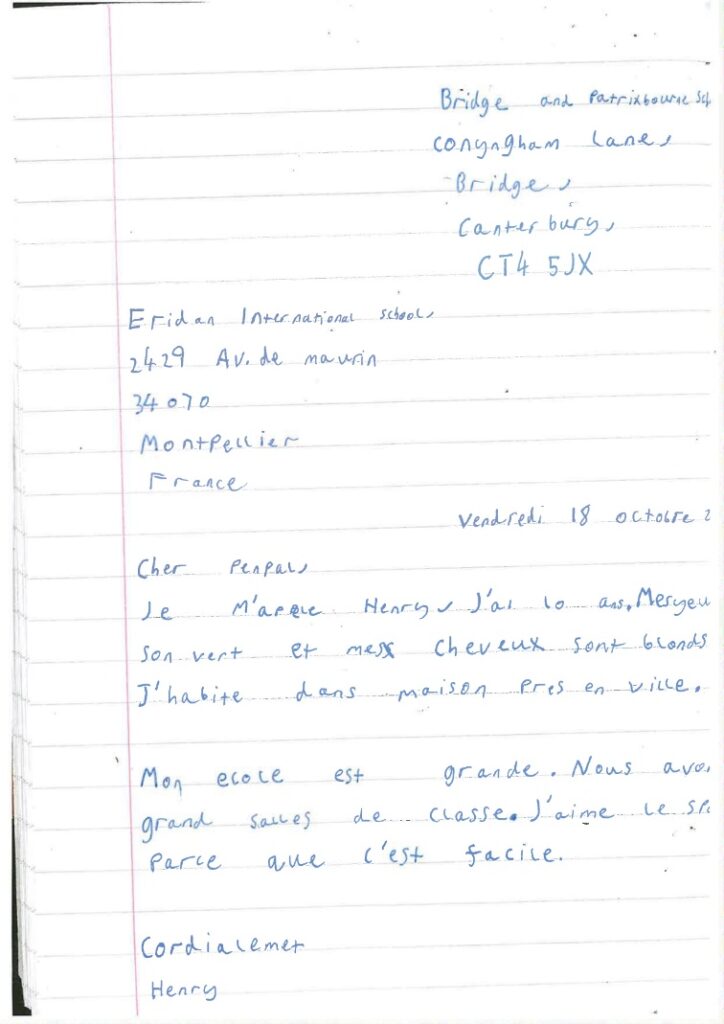 Bridge and Patrixbourne Sch
Conyngham Lane,
Bridge,
Canterbury,
CT4 5JX
Eridan International School,
2429 Av. de maurin
34070
Montpellier
France
Vendredi 18 octobre 2
Cher Penpal,
Je M'apelle Henry, J'ai 10 ans. Mes yeu
son vert et mes cheveux sont blonds
J'habite dans maison Pres en ville.
Mon ecole est grande. Nous avo
grand salles de classe. J'aime le sp
Parce que c'est facile.
Cordialemet
Henry